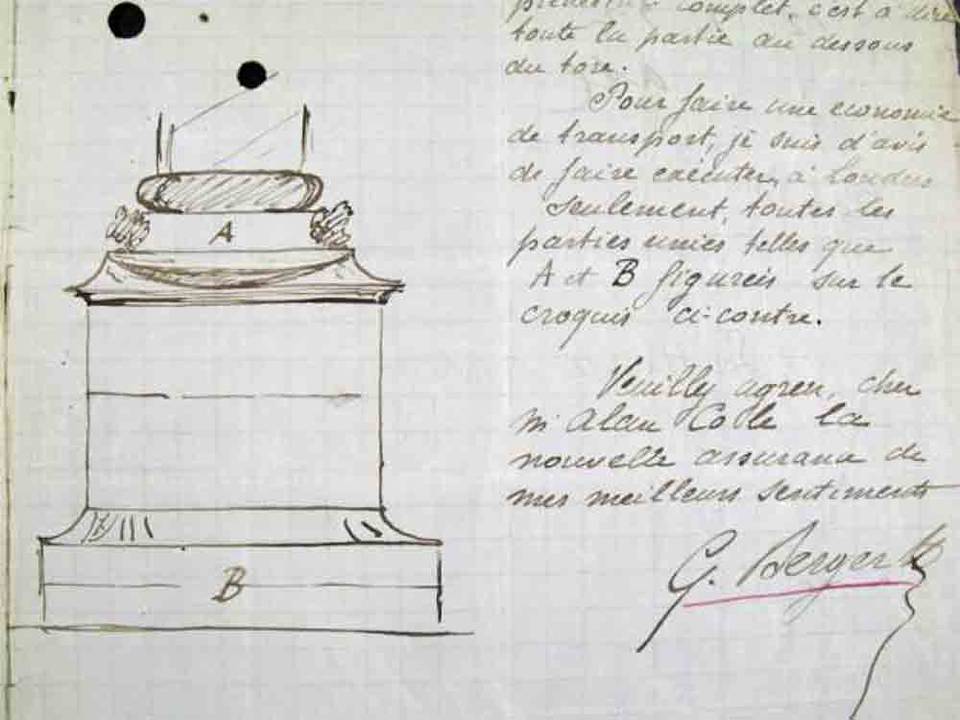 complet, c'est à dire
toute la partie au dessous
du tore.
Pour faire une economie
de transport, je suis d'avis
de faire exécuter, à Londres
seulement, toutes les
parties unies telles que
A et B figureis sur le
croquis ci-contre.
Veuilly agreer, cher
Mr Alan Cole la
nouvelle assurance de
mes meilleurs sentiments
G. Berger
A
B